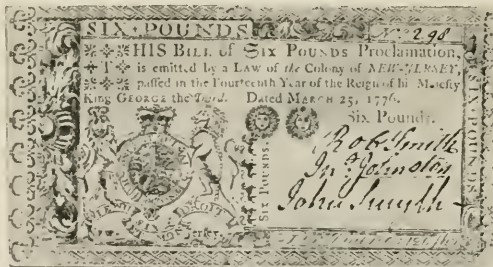 SIX POUNDS No. 298
THIS BILL of SIX POUNDS Proclamation,
is emitted by a Law of the Colony of NEW-JERSEY,
passed in the Fourteenth Year of the Reign of his Majesty
King GEORGE the Third. Dated MARCH 25, 1776.
Six Pounds.
SIX POUNDS.
SIX POUNDS
Rob Smith
Jno Johnston
John Smyth